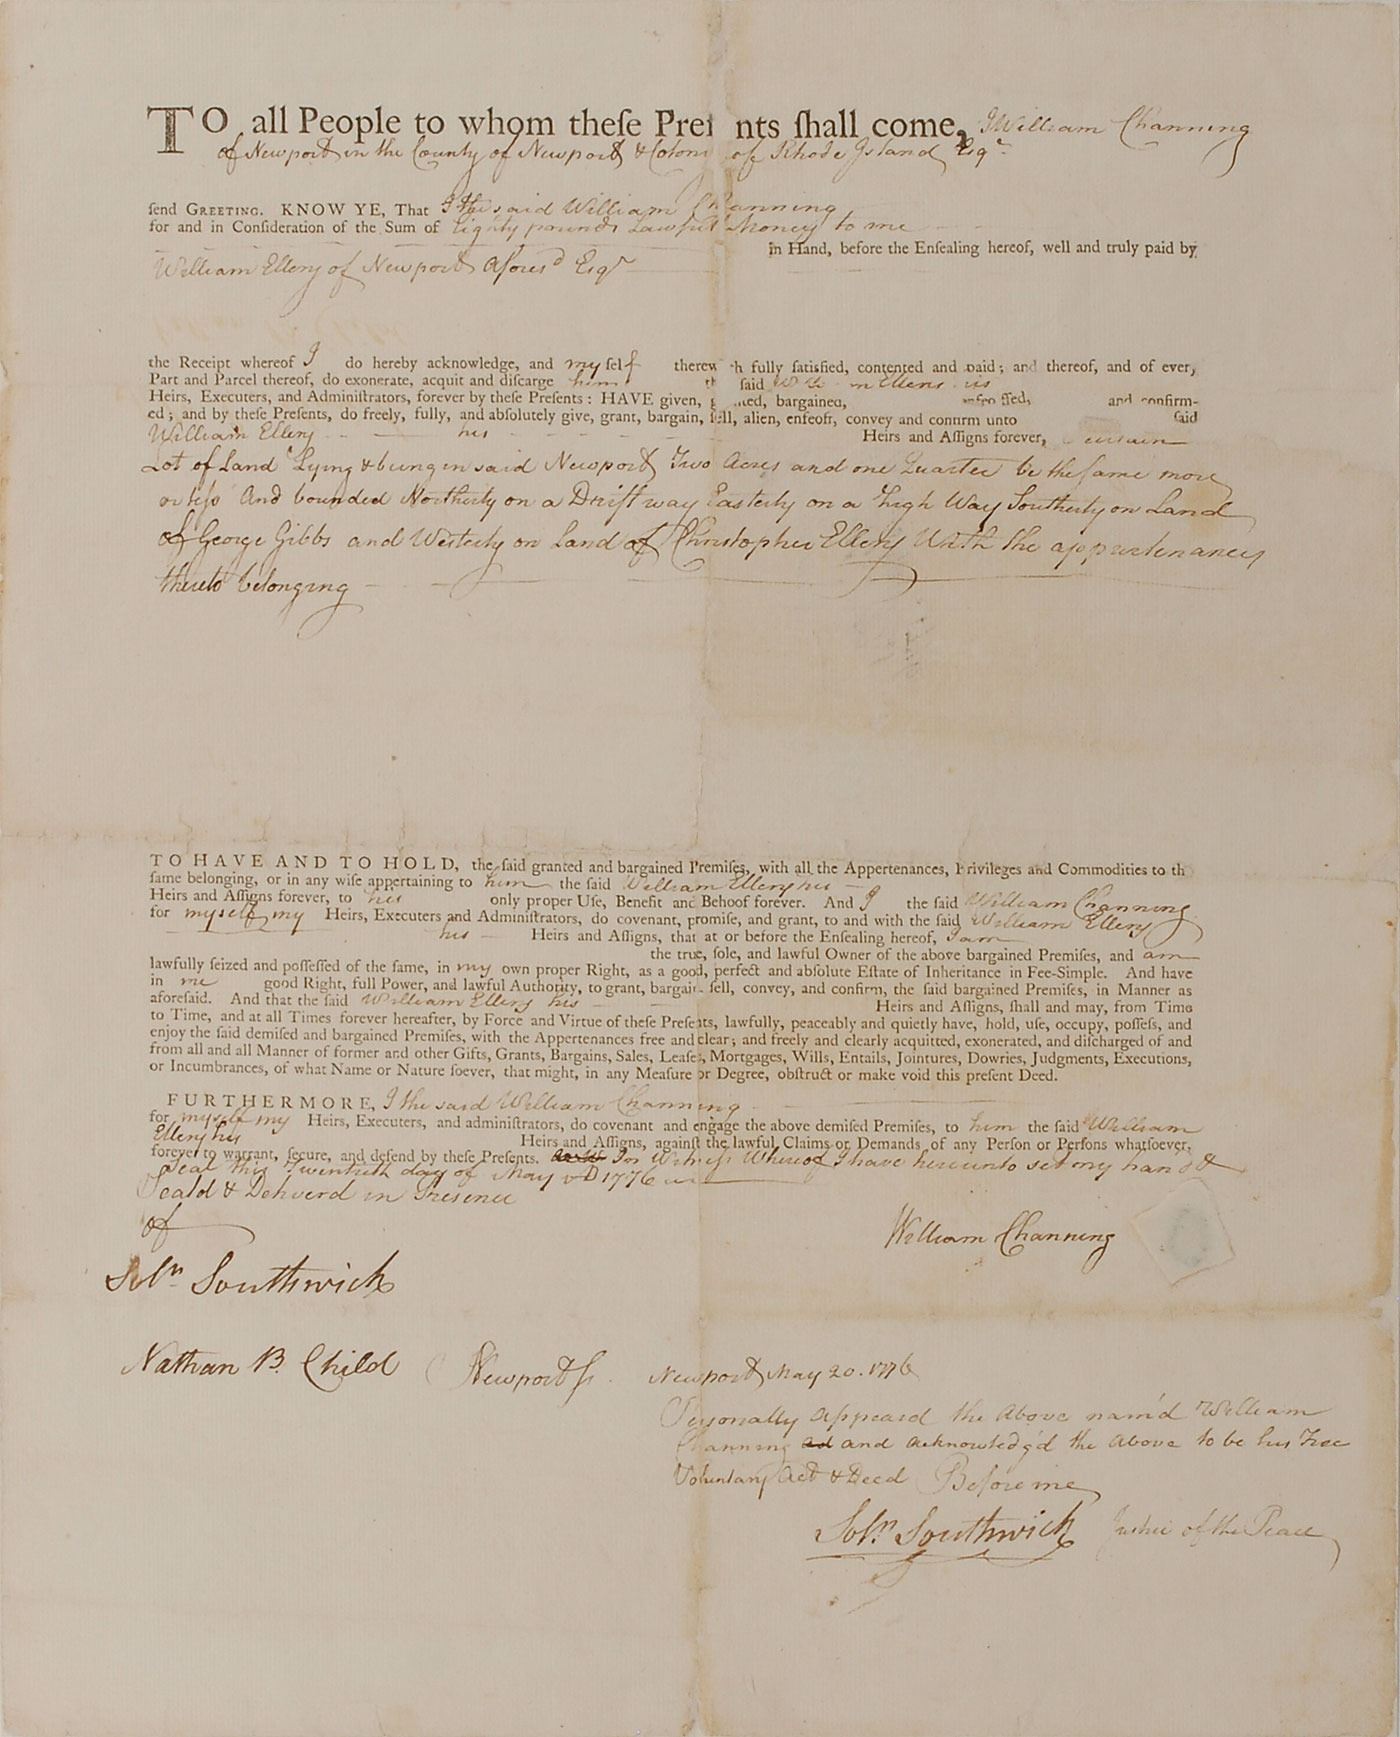 TO all People to whom theſe Preſ nts ſhall come, I William Channing
of Newport in the County of Newport & Colony of Rhode Island Esqr
ſend GREETING. KNOW YE, That I the said William Channing
for and in Conſideration of the Sum of Eighty pounds Lawfull Money to me
in Hand, before the Enſealing hereof, well and truly paid by
William Ellery of Newport Afores'd Esqr
the Receipt whereof I do hereby acknowledge, and myself therew th fully ſatisfied, contented and paid; and thereof, and of every
Part and Parcel thereof, do exonerate, acquit and diſcarge him the ſaid Ellery his
Heirs, Executers, and Adminiſtrators, forever by theſe Preſents: HAVE given, g nted, bargained, and confirm-
ed; and by theſe Preſents, do freely, fully, and abſolutely give, grant, bargain, ſell, alien, enfeoff, convey and confirm unto ſaid
William Ellery his Heirs and Aſſigns forever, a certain
Lot of Land Lying & being in said Newport Two Acres and one Quarter be the same more
or less And bounded Northerly on a Driftway Easterly on a High Way Southerly on Land
of George Gibbs and Westerly on Land of Christopher Ellery With the appurtenances
thereto belonging
TO HAVE AND TO HOLD, the ſaid granted and bargained Premiſes, with all the Appertenances, Privileges and Commodities to th
ſame belonging, or in any wiſe appertaining to him the ſaid William Ellery his
Heirs and Aſſigns forever, to his only proper Uſe, Benefit and Behoof forever. And I the ſaid William Channing
for myself my Heirs, Executers and Adminiſtrators, do covenant, promiſe, and grant, to and with the ſaid William Ellery
his Heirs and Aſſigns, that at or before the Enſealing hereof, I am
the true, ſole, and lawful Owner of the above bargained Premiſes, and am
lawfully ſeized and poſſeſſed of the ſame, in my own proper Right, as a good, perfect and abſolute Eſtate of Inheritance in Fee-Simple. And have
in me good Right, full Power, and lawful Authority, to grant, bargain ſell, convey, and confirm, the ſaid bargained Premiſes, in Manner as
aforeſaid. And that the ſaid William Ellery his Heirs and Aſſigns, ſhall and may, from Time
to Time, and at all Times forever hereafter, by Force and Virtue of theſe Preſents, lawfully, peaceably and quietly have, hold, uſe, occupy, poſſeſs, and
enjoy the ſaid demiſed and bargained Premiſes, with the Appertenances free and clear; and freely and clearly acquitted, exonerated, and diſcharged of and
from all and all Manner of former and other Gifts, Grants, Bargains, Sales, Leaſes, Mortgages, Wills, Entails, Jointures, Dowries, Judgments, Executions,
or Incumbrances, of what Name or Nature ſoever, that might, in any Meaſure or Degree, obſtruct or make void this preſent Deed.
FURTHERMORE, I the said William Channing
for myself my Heirs, Executers, and adminiſtrators, do covenant and engage the above demiſed Premiſes, to him the ſaid William
Ellery his Heirs and Aſſigns, againſt the lawful Claims or Demands of any Perſon or Perſons whatſoever,
forever to warrant, ſecure, and defend by theſe Preſents. In Witness Whereof I have hereunto set my hand &
Seal this Twentieth day of May AD 1776
Seald & Deliverd in Presence
of
William Channing
Soln Southwick
Nathan B. Child
Newport Ss. Newport May 20. 1776
Personally Appeared the Above nam'd William
Channing and Acknowledg'd the Above to be his Free
Voluntary Act & Deed Before me
Soln. Southwick Justice of the Peace